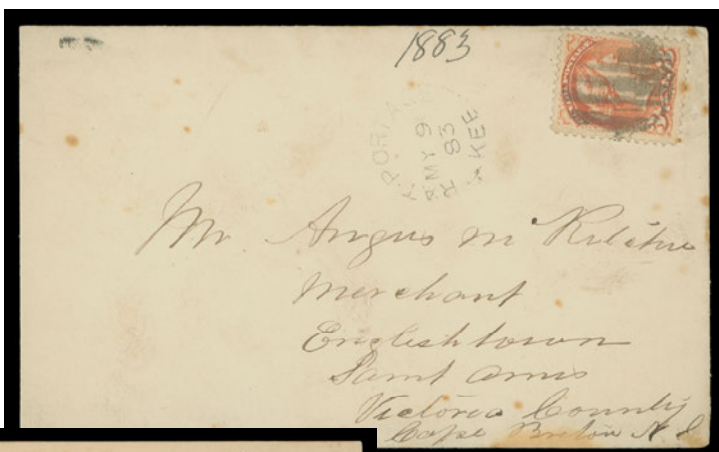 1883
PORTA
MY 9
83
KEE
Mr. Angus
Merchant
Englishtown
Saint Anns
Victoria County
Cape Breton N S